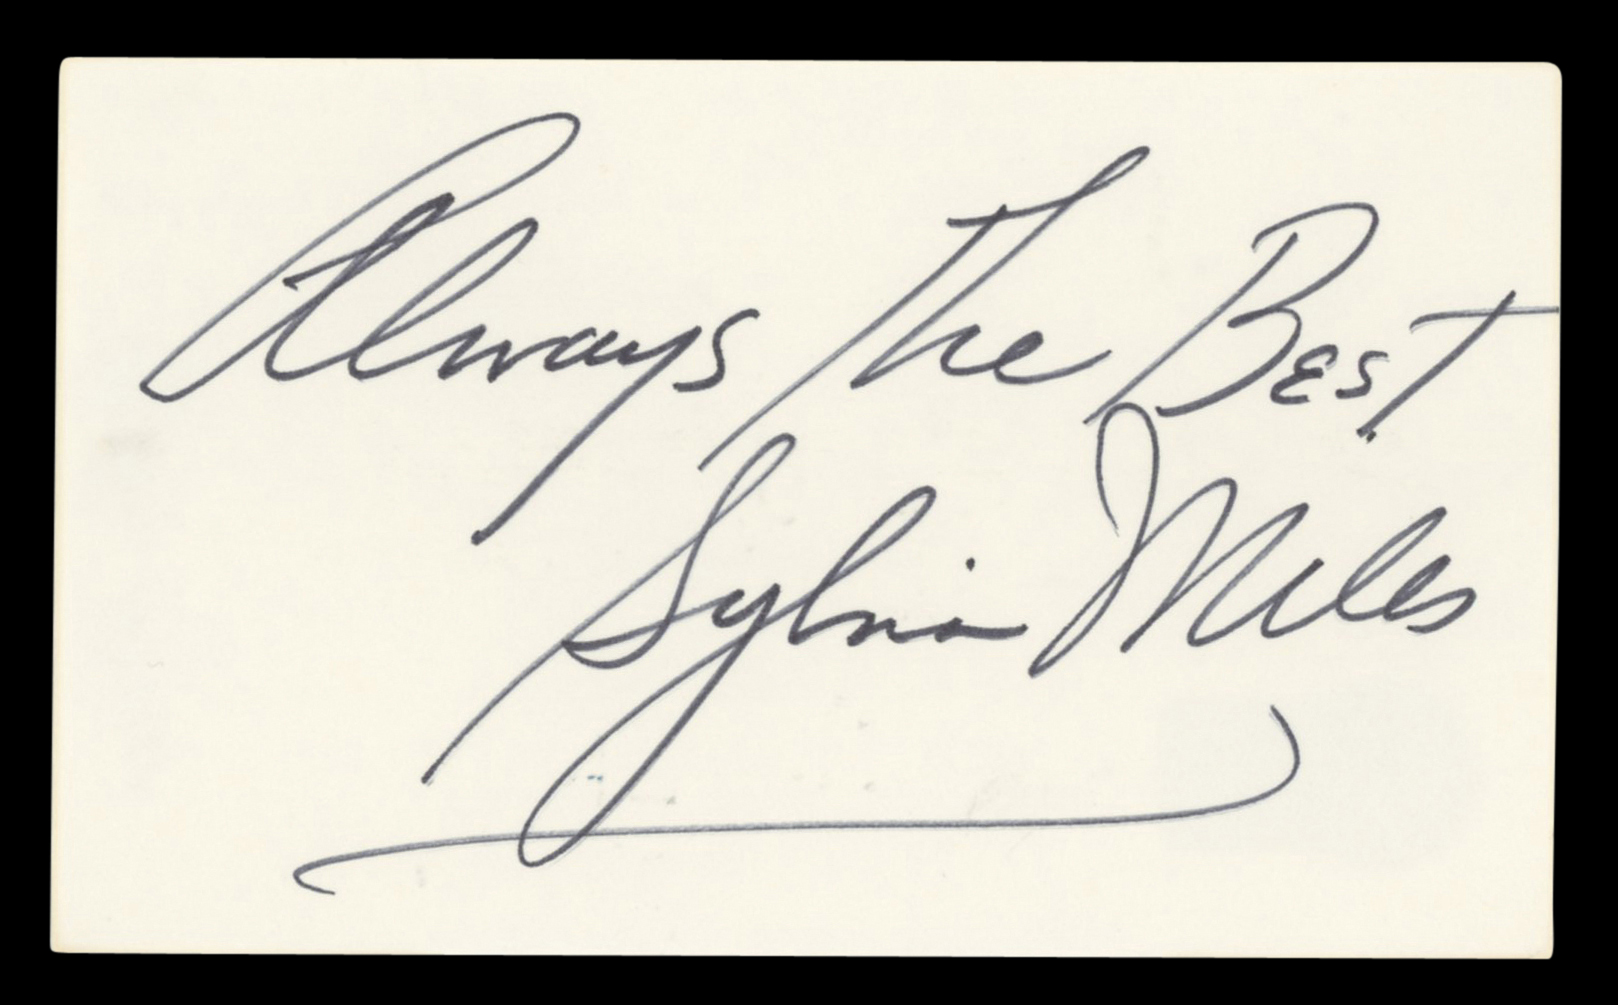 Always The Best
Sylvia Miles